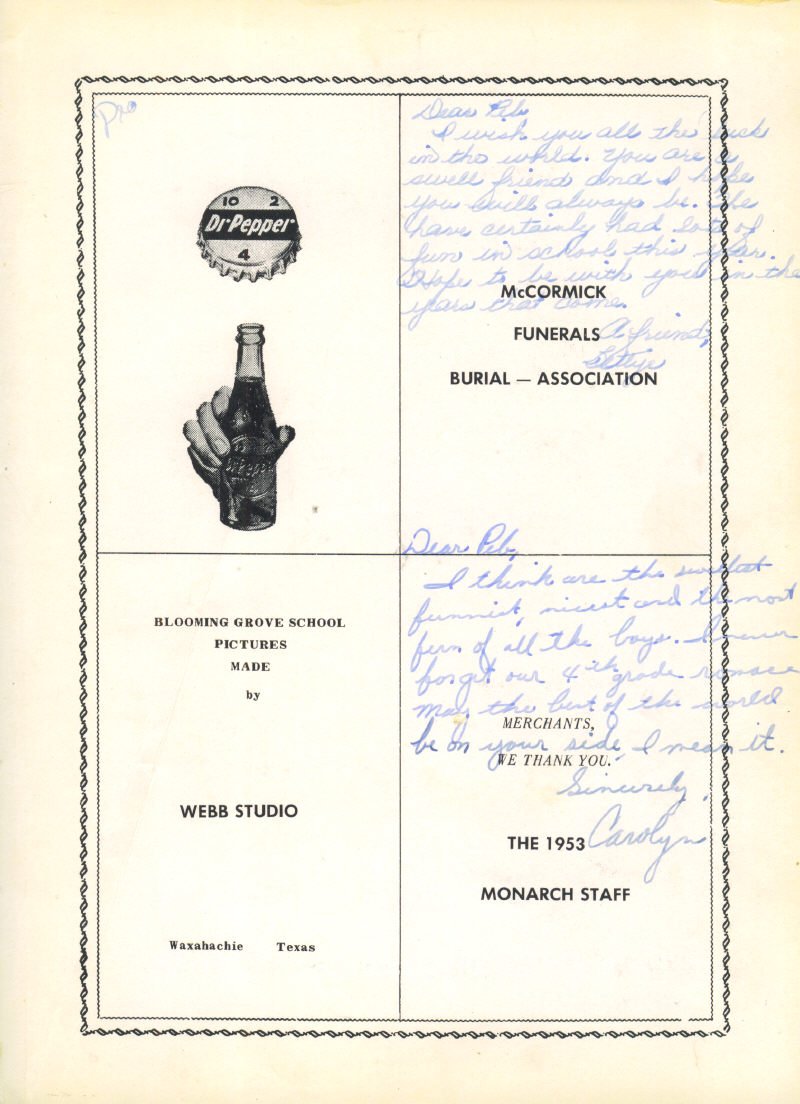 10 2
Dr Pepper
4
Dr Pepper
Dear Peb,
I wish you all the luck
in the world. You are a
swell friend and I hope
you will always be. We
have certainly had lots of
fun in school this year.
Hope to be with you in the
years that come.
A friend,
McCORMICK
FUNERALS
BURIAL — ASSOCIATION
BLOOMING GROVE SCHOOL
PICTURES
MADE
by
WEBB STUDIO
Waxahachie Texas
Dear Peb,
I think are the sweetest
funnist, nicest and the most
fun of all the boys. I never
forget our 4th grade romace
May the best of the world
be on your side, I mean it.
Sincerely,
Carolyn
MERCHANTS,
WE THANK YOU.
THE 1953
MONARCH STAFF